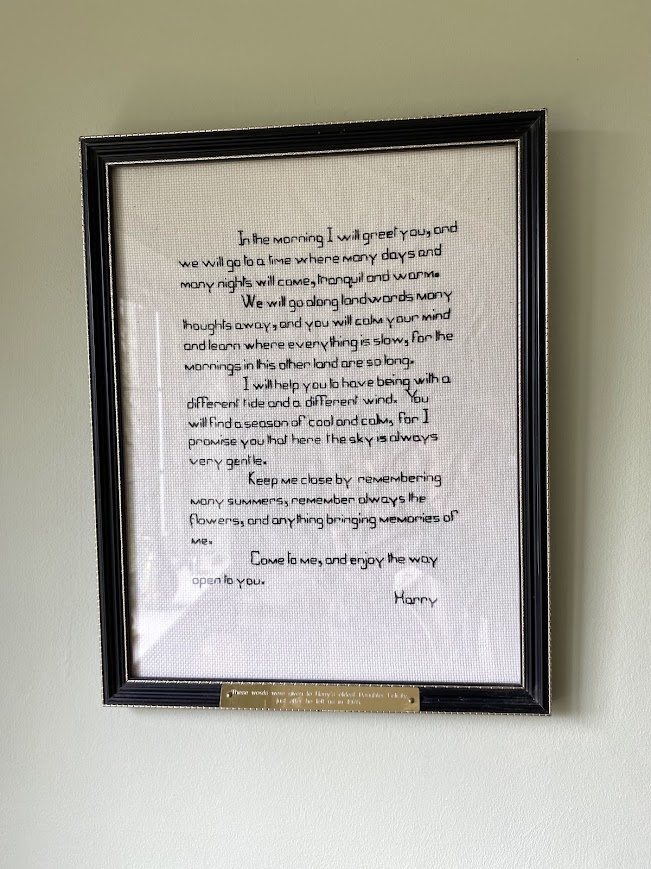 In the morning I will greet you, and
we will go to a time where many days and
many nights will come, tranquil and warm.
We will go along landwards many
thoughts away, and you will calm your mind
and learn where everything is slow, for the
mornings in this other land are so long.
I will help you to have being with a
different tide and a different wind. You
will find a season of cool and calm, for I
promise you that here the sky is always
very gentle.
Keep me close by remembering
many summers, remember always the
flowers, and anything bringing memories of
me.
Come to me, and enjoy the way
open to you.
Harry
These words were given to Harry's eldest daughter
just after he left us in